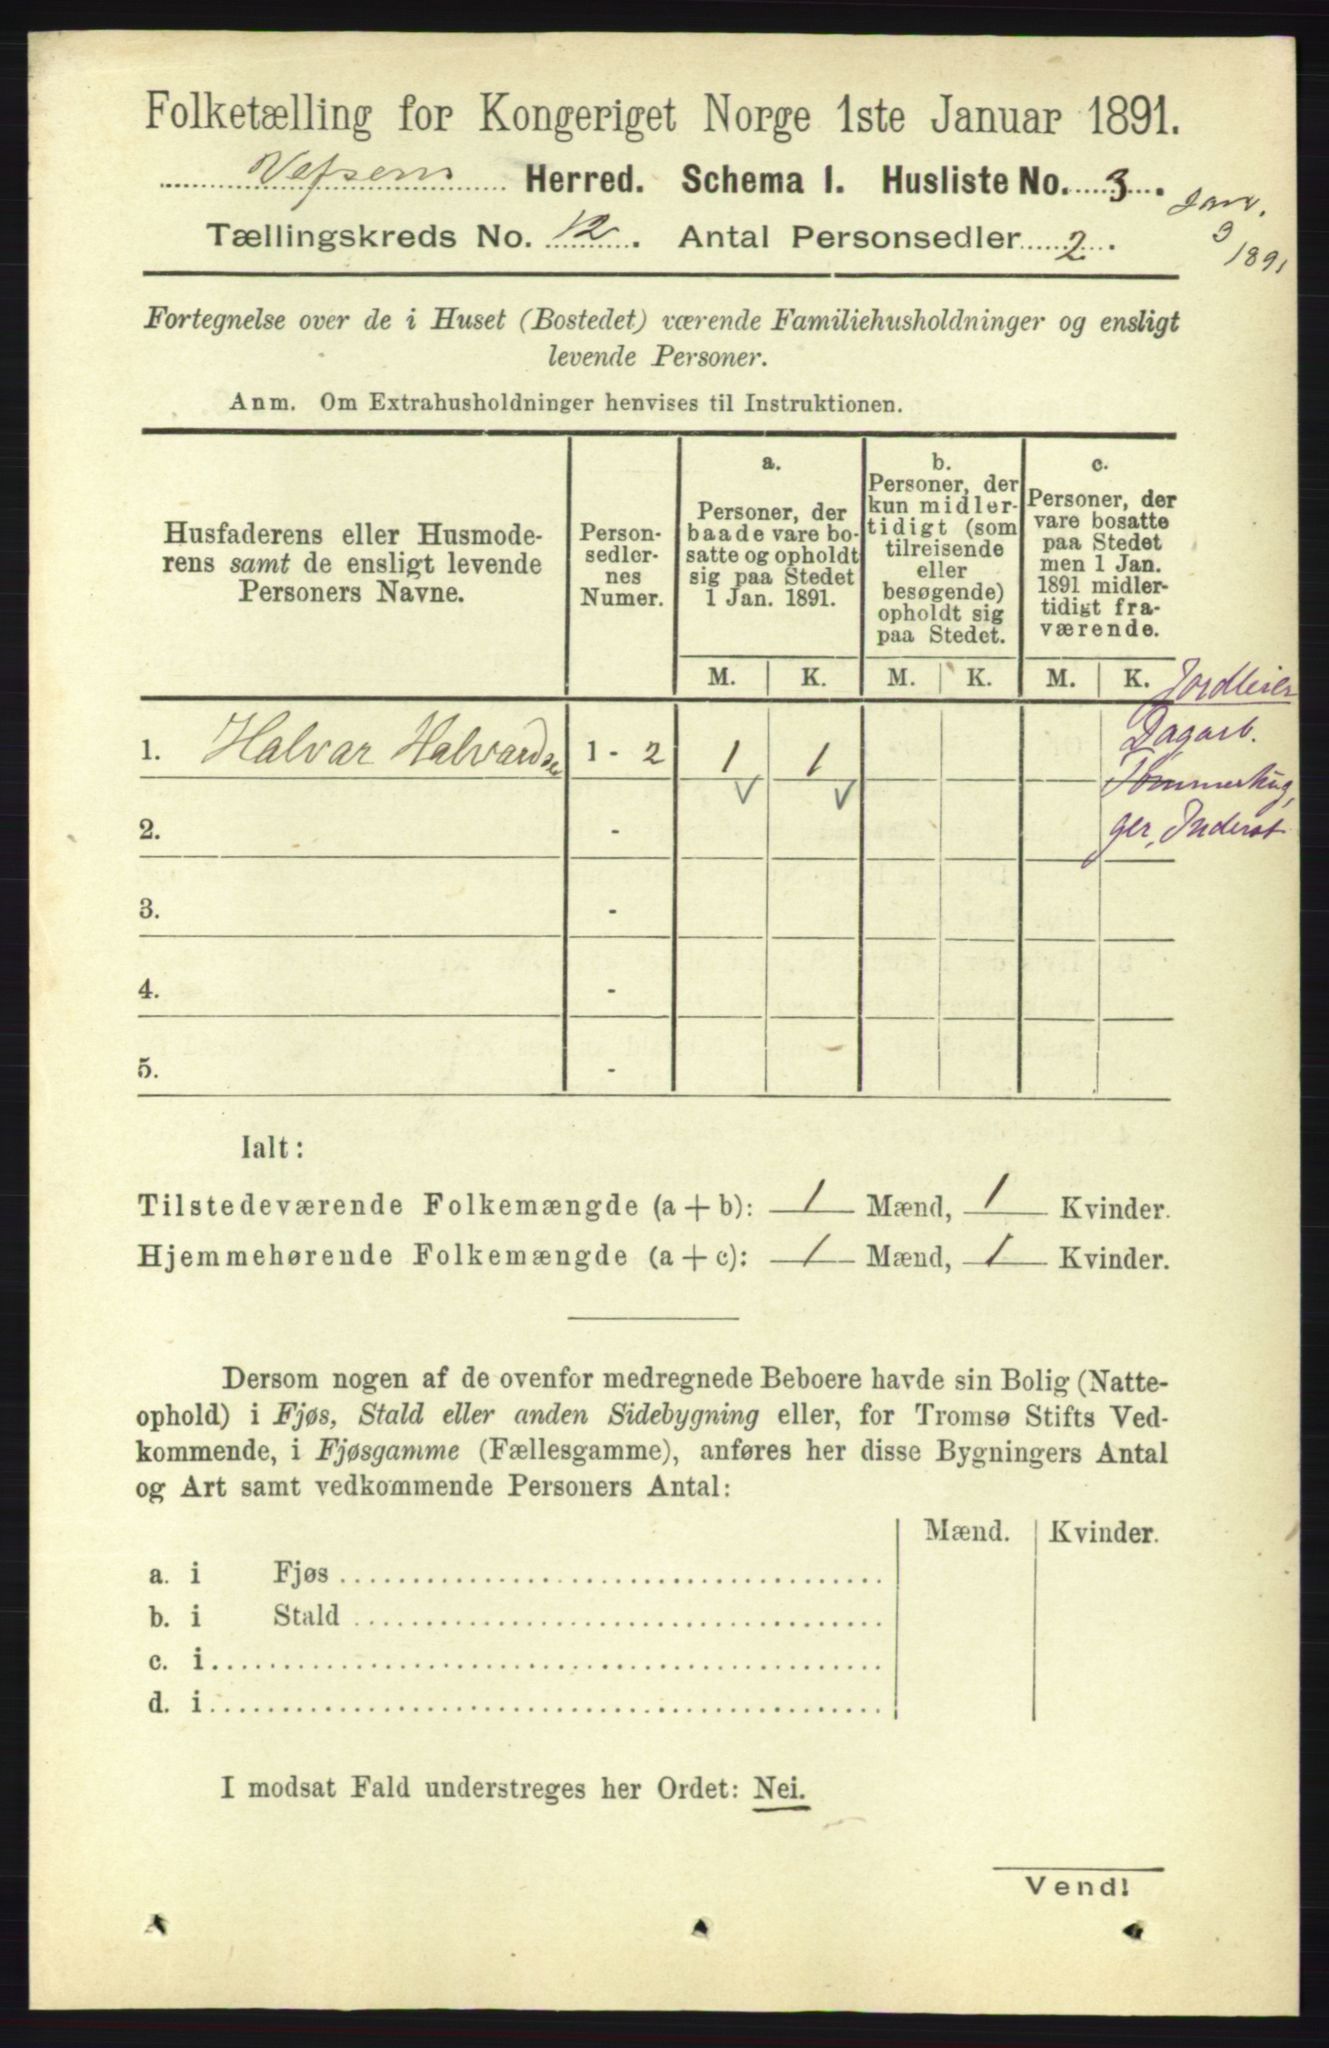 Folketælling for Kongeriget Norge 1ste Januar 1891.
Vefsen Herred. Schema 1. Husliste No. 3.
Jan.
Tællingskreds No. 12. Antal Personsedler 2.
3
1891
Fortegnelse over de i Huset (Bostedet) værende Familiehusholdninger og ensligt
levende Personer.
Anm. Om Extrahusholdninger henvises til Instruktionen.
Husfaderens eller Husmode-
rens samt de ensligt levende
Personers Navne.
Person-
sedler-
nes
Numer.
a.
Personer, der
baade vare bo-
satte og opholdt
sig paa Stedet
1 Jan. 1891.
b.
Personer, der
kun midler-
tidigt (som
tilreisende
eller
besøgende)
opholdt sig
paa Stedet.
c.
Personer, der
vare bosatte
paa Stedet
men 1 Jan.
1891 midler-
tidigt fra-
værende.
M. K. M. K. M. K.
Jordleier
Dagarb.
Tømmerhug,
ger, Inderst
1. Halvar Halvardsen 1 - 2 1 1
2. -
3. -
4. -
5. -
Ialt:
Tilstedeværende Folkemængde (a + b): 1 Mænd, 1 Kvinder.
Hjemmehørende Folkemængde (a + c): 1 Mænd, 1 Kvinder.
Dersom nogen af de ovenfor medregnede Beboere havde sin Bolig (Natte-
ophold) i Fjøs, Stald eller anden Sidebygning eller, for Tromsø Stifts Ved-
kommende, i Fjøsgamme (Fællesgamme), anføres her disse Bygningers Antal
og Art samt vedkommende Personers Antal:
Mænd. Kvinder.
a. i Fjøs
b. i Stald
c. i
d. i
I modsat Fald understreges her Ordet: Nei.
Vend!